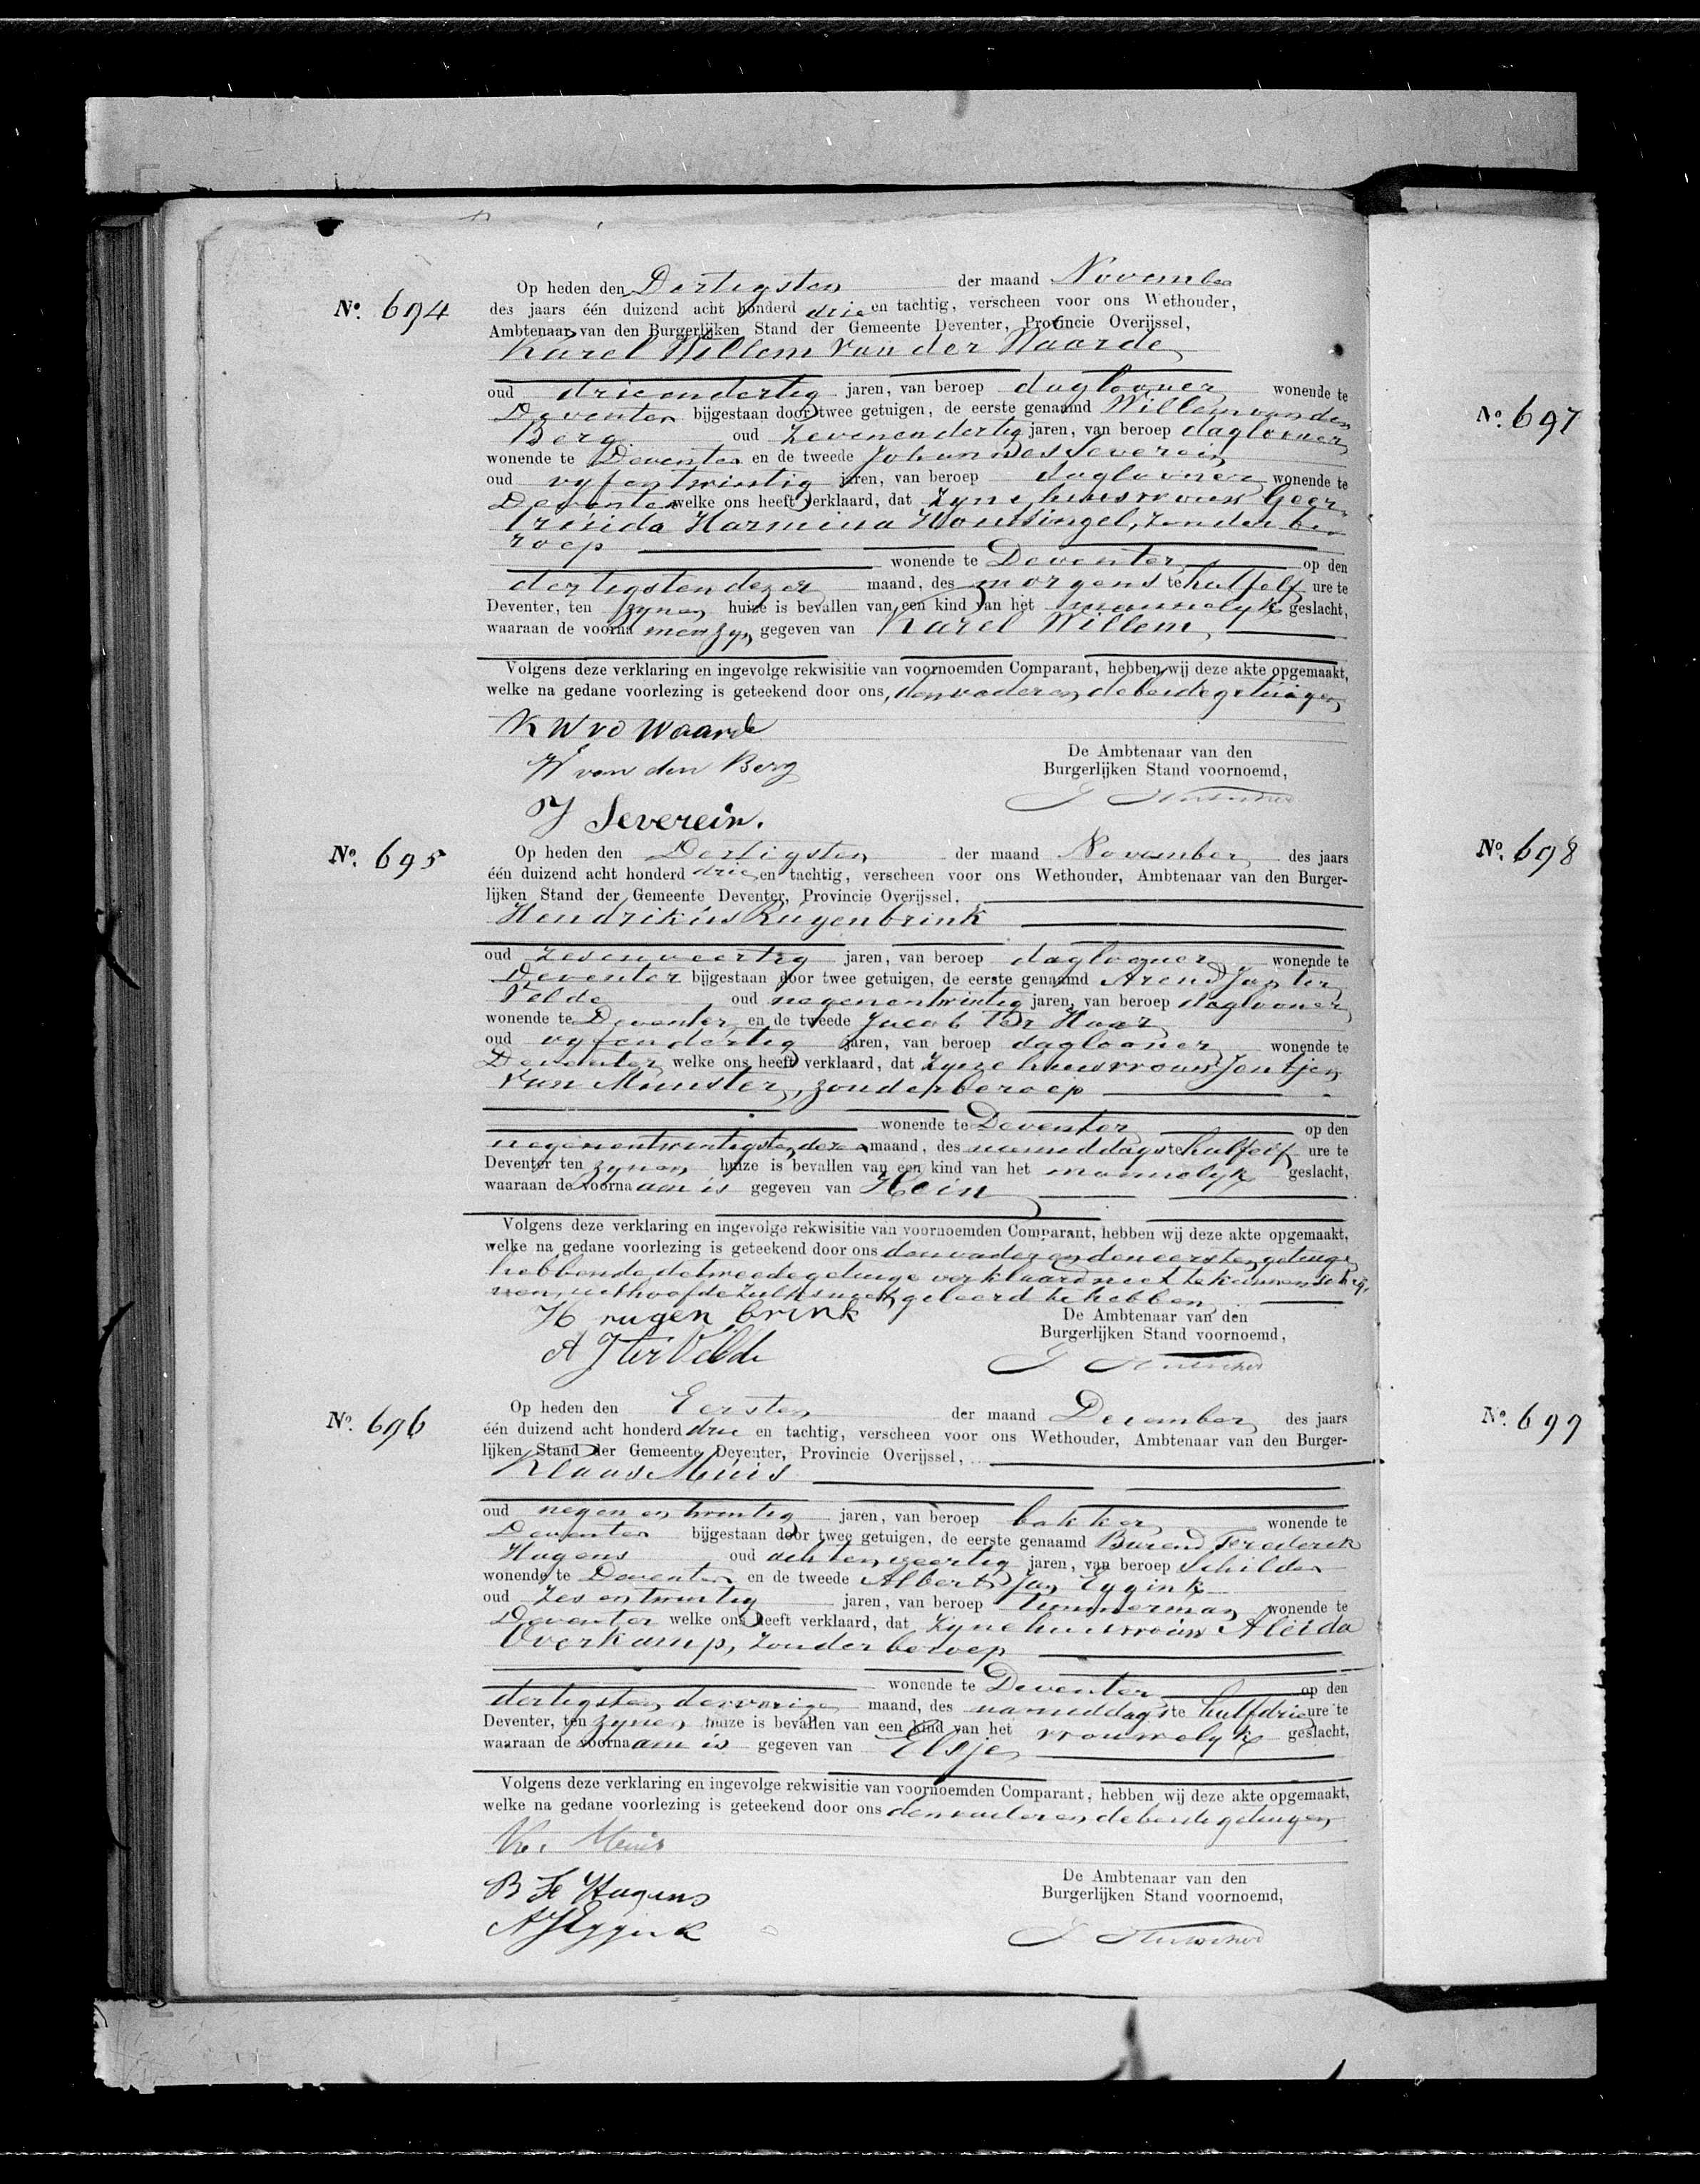 Op heden den Dertigsten der maand November
No. 694
des jaars één duizend acht honderd drie en tachtig, verscheen voor ons Wethouder,
Ambtenaar van den Burgerlijken Stand der Gemeente Deventer, Provincie Overijssel,
Karel Willem van der Waarde
oud drieendertig jaren, van beroep daglooner wonende te
Deventer bijgestaan door twee getuigen, de eerste genaamd Willem van den
Berg oud zevenendertig jaren, van beroep daglooner
wonende te Deventer en de tweede Johannes Severein
oud vyfentwintig jaren, van beroep daglooner wonende te
Deventer welke ons heeft verklaard, dat zyne huisvrouw Geer-
truida Harmina Houtsingel, zonder be-
roep
wonende te Deventer op den
dertigsten dezer maand, des morgens te half elf ure te
Deventer, ten zynen huize is bevallen van een kind van het mannelyk geslacht,
waaraan de voornamen zyn gegeven van Karel Willem
Volgens deze verklaring en ingevolge rekwisitie van voornoemden Comparant, hebben wij deze akte opgemaakt,
welke na gedane voorlezing is geteekend door ons, den vader en de beide getuigen
K W vd Waarde
W van den Berg
De Ambtenaar van den
Burgerlijken Stand voornoemd,
J Severein.
No. 695
Op heden den Dertigsten der maand November des jaars
één duizend acht honderd drie en tachtig, verscheen voor ons Wethouder, Ambtenaar van den Burger-
lijken Stand der Gemeente Deventer, Provincie Overijssel,
Hendrikus Rugenbrink
oud zesenveertig jaren, van beroep daglooner wonende te
Deventer bijgestaan door twee getuigen, de eerste genaamd Arend Jan ter
Velde oud negenentwintig jaren, van beroep daglooner
wonende te Deventer en de tweede Jacob ter Haar
oud vyfendertig jaren, van beroep daglooner wonende te
Deventer welke ons heeft verklaard, dat zyne huisvrouw Jentjen
van Munster, zonder beroep
wonende te Deventer op den
negenentwintigsten dezer maand, des namiddags te half elf ure te
Deventer ten zynen huize is bevallen van een kind van het mannelyk geslacht,
waaraan de voornaam is gegeven van Hein
Volgens deze verklaring en ingevolge rekwisitie van voornoemden Comparant, hebben wij deze akte opgemaakt,
welke na gedane voorlezing is geteekend door ons den vader en den eersten getuige
hebbende de tweede getuige verklaard niet te kunnen schry-
ven, uit hoofde zulks niet geleerd te hebben
H rugen brink
A J ter Velde
De Ambtenaar van den
Burgerlijken Stand voornoemd,
No. 696
Op heden den Eersten der maand December des jaars
één duizend acht honderd drie en tachtig, verscheen voor ons Wethouder, Ambtenaar van den Burger-
lijken Stand der Gemeente Deventer, Provincie Overijssel,
Klaas Muis
oud negen en twintig jaren, van beroep bakker wonende te
Deventer bijgestaan door twee getuigen, de eerste genaamd Barend Frederik
Hagens oud achtenveertig jaren, van beroep schilder
wonende te Deventer en de tweede Albert Jan Eggink
oud zes en twintig jaren, van beroep timmerman wonende te
Deventer welke ons heeft verklaard, dat zyne huisvrouw Aleida
Overkamp, zonder beroep
wonende te Deventer op den
dertigsten der vorige maand, des namiddags te half drie ure te
Deventer, ten zynen huize is bevallen van een kind van het vrouwelyk geslacht,
waaraan de voornaam is gegeven van Elsje
Volgens deze verklaring en ingevolge rekwisitie van voornoemden Comparant, hebben wij deze akte opgemaakt,
welke na gedane voorlezing is geteekend door ons den vader en de beide getuigen
K. Muis
B F Hagens
A J Eggink
De Ambtenaar van den
Burgerlijken Stand voornoemd,
No. 697
No. 698
No. 699